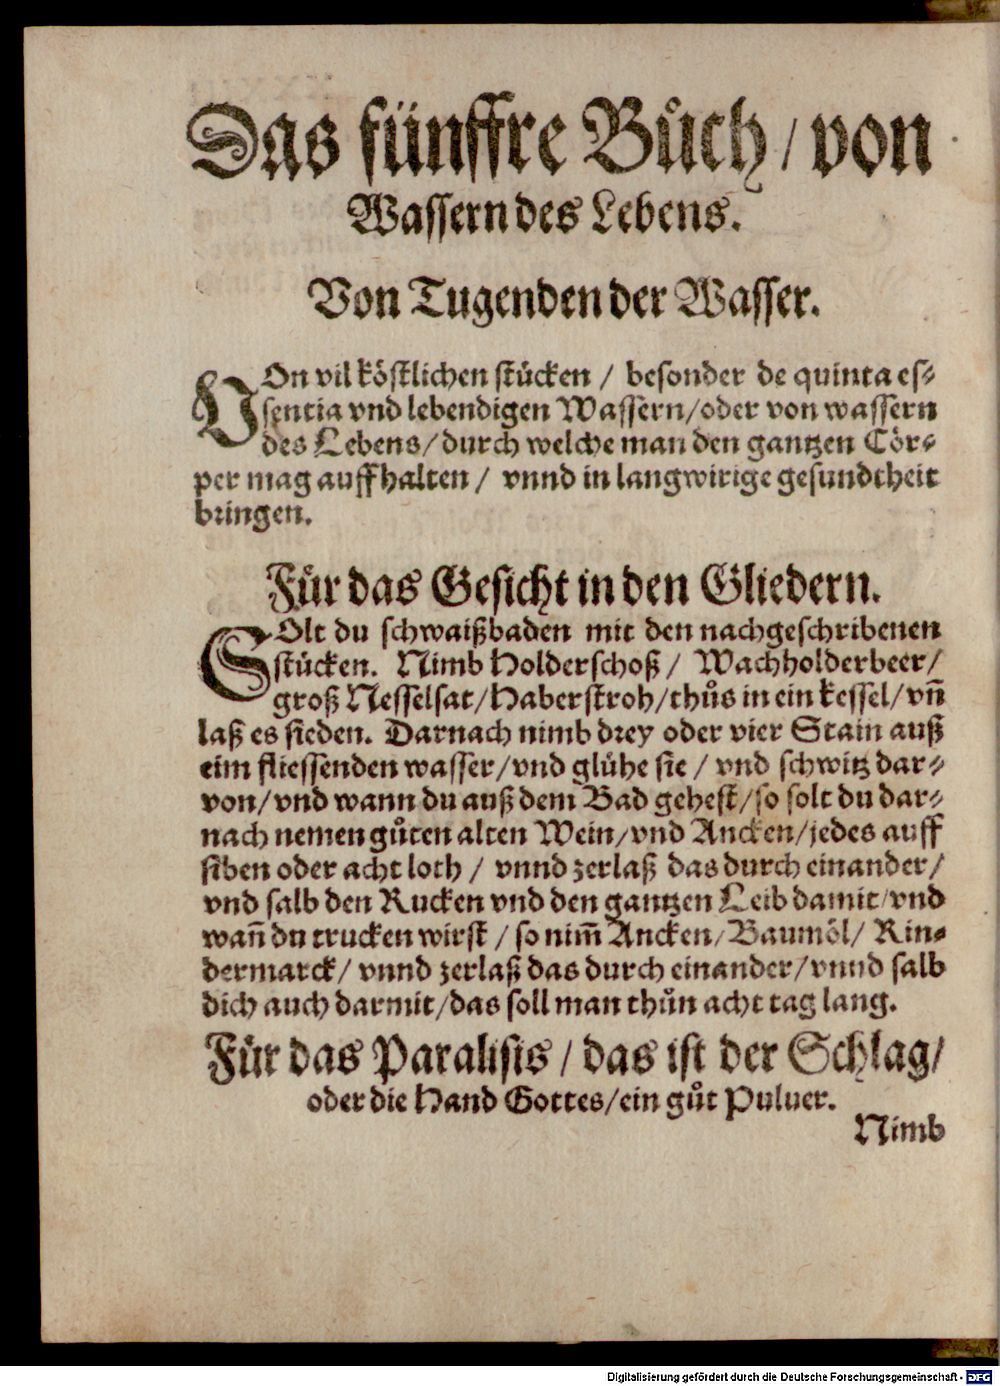 Das fünffte Bůch / von
Wassern des Lebens.
Von Tugenden der Wasser.
VOn vil köstlichen stücken / besonder de quinta es⸗
sentia vnd lebendigen Wassern/oder von wassern
des Lebens/durch welche man den gantzen Cör⸗
per mag auffhalten / vnnd in langwirige gesundtheit
bringen.
Für das Gesicht in den Gliedern.
SOlt du schwaißbaden mit den nachgeschribenen
stücken. Nimb Holderschoß / Wachholderbeer/
groß Nesselsat/Haberstroh/thůs in ein kessel/vñ
laß es sieden. Darnach nimb drey oder vier Stain auß
eim fliessenden wasser/vnd glühe sie / vnd schwitz dar⸗
von/vnd wann du auß dem Bad gehest/so solt du dar⸗
nach nemen gůten alten Wein/vnd Ancken/jedes auff
siben oder acht loth / vnnd zerlaß das durch einander/
vnd salb den Rucken vnd den gantzen Leib damit/vnd
wañ du trucken wirst / so nim̃ Ancken/Baumöl/ Rin⸗
dermarck/ vnnd zerlaß das durch einander/vnnd salb
dich auch darmit/das soll man thůn acht tag lang.
Für das Paralisis / das ist der Schlag/
oder die Hand Gottes/ein gůt Puluer.
Nimb
Digitalisierung gefördert durch die Deutsche Forschungsgemeinschaft - DFG